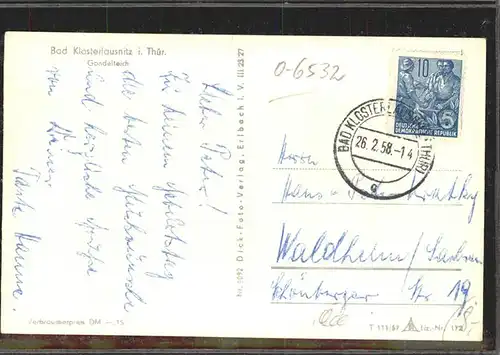 Bad Klosterlausnitz i. Thür.
Gondelteich
Lieber Peter!
Zu deinem Geburtstag
die besten Glückwünsche
und herzliche Grüße
von Deiner
Tante Hanne.
Verbraucherpreis DM —.15
Nr. 1692 Dick-Foto-Verlag, Erlbach i. V. III 25 27
0-6532
10
DEUTSCHE
DEMOKRATISCHE REPUBLIK
5
BAD KLOSTERLAUSNITZ (THÜR)
26.2.58.-14
a
Herrn
Hans-Peter
Waldheim / Sachsen
Schönberger Str 19
T 111/57 Liz.-Nr.